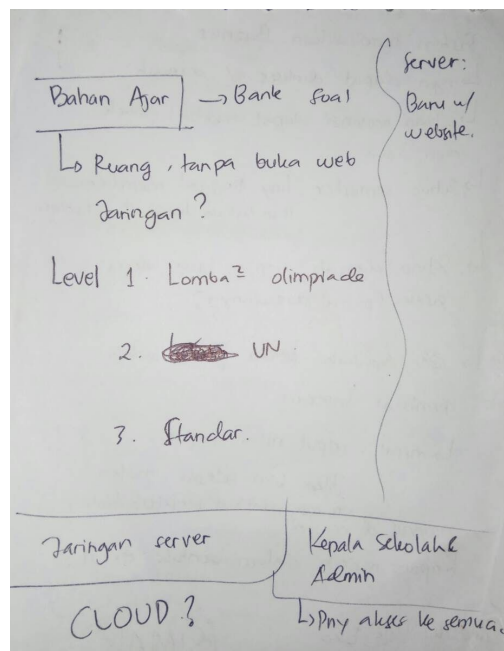 Bahan Ajar → Bank soal
↳ Ruang, tanpa buka web
Jaringan?
Level 1. Lomba² olimpiade
2. UN.
3. Standar.
server:
Baru u/
website.
Jaringan server
CLOUD?
Kepala sekolah &
Admin
↳ Pny akses ke semua.